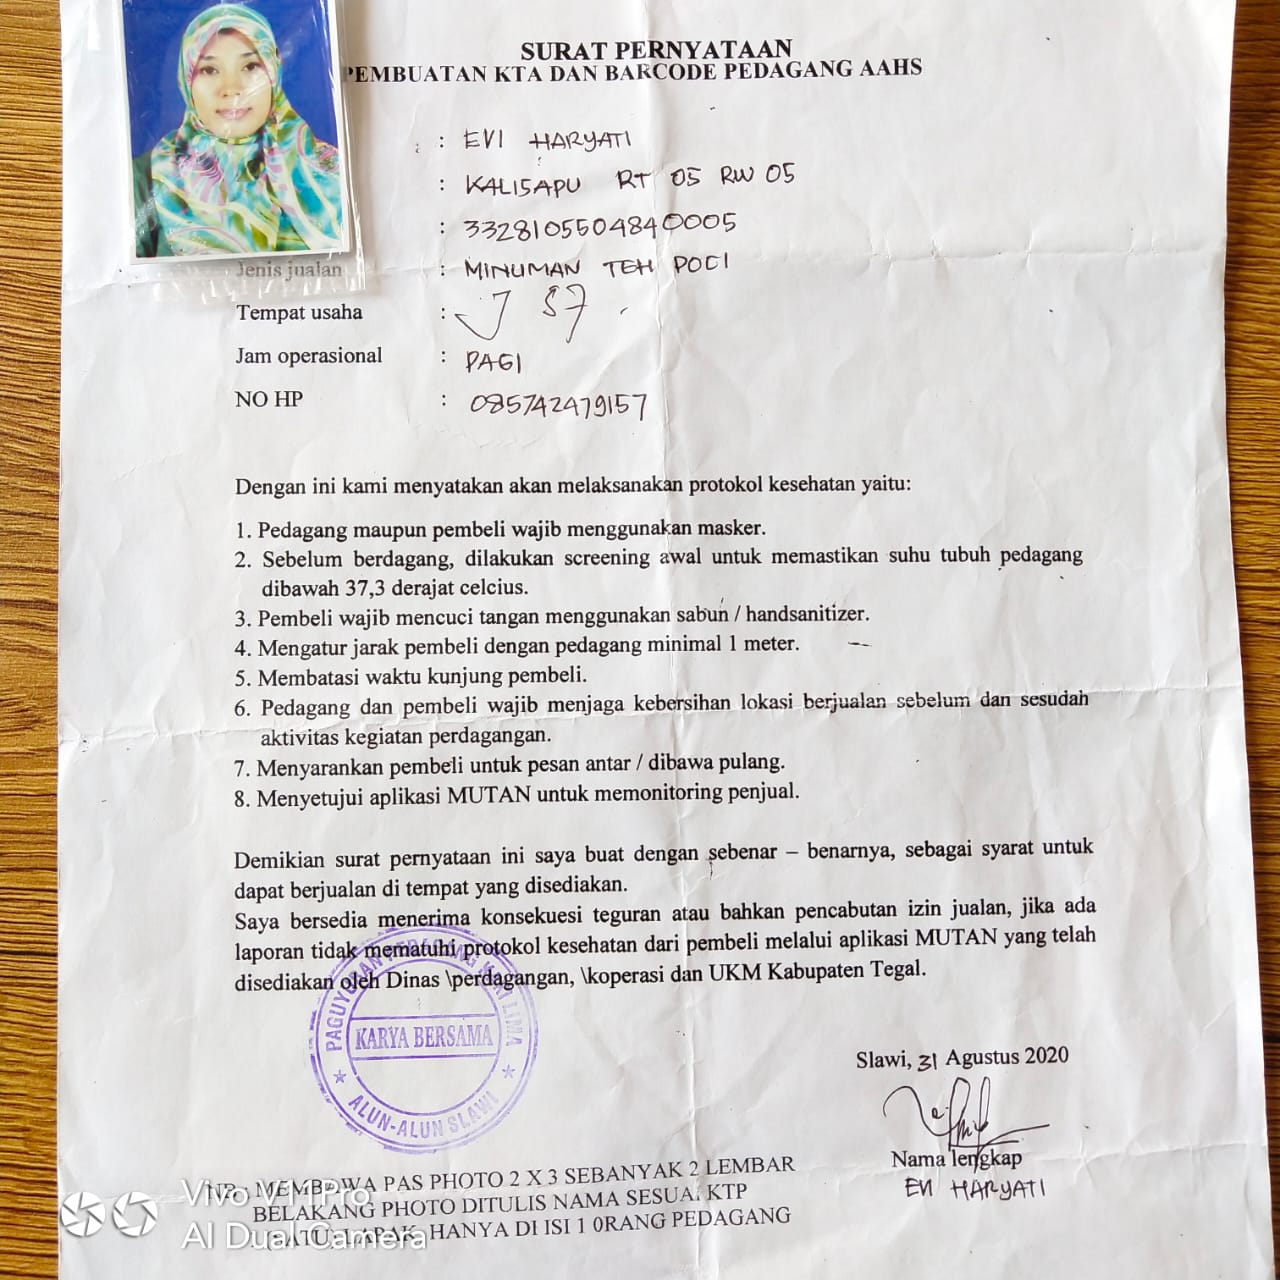 SURAT PERNYATAAN
PEMBUATAN KTA DAN BARCODE PEDAGANG AAHS
: EVI HARYATI
: KALISAPU RT 05 RW 05
: 3328105504840005
Jenis jualan : MINUMAN TEH POCI
Tempat usaha : J 57
Jam operasional : PAGI
NO HP : 085742479157
Dengan ini kami menyatakan akan melaksanakan protokol kesehatan yaitu:
1. Pedagang maupun pembeli wajib menggunakan masker.
2. Sebelum berdagang, dilakukan screening awal untuk memastikan suhu tubuh pedagang
dibawah 37,3 derajat celcius.
3. Pembeli wajib mencuci tangan menggunakan sabun / handsanitizer.
4. Mengatur jarak pembeli dengan pedagang minimal 1 meter.
5. Membatasi waktu kunjung pembeli.
6. Pedagang dan pembeli wajib menjaga kebersihan lokasi berjualan sebelum dan sesudah
aktivitas kegiatan perdagangan.
7. Menyarankan pembeli untuk pesan antar / dibawa pulang.
8. Menyetujui aplikasi MUTAN untuk memonitoring penjual.
Demikian surat pernyataan ini saya buat dengan sebenar – benarnya, sebagai syarat untuk
dapat berjualan di tempat yang disediakan.
Saya bersedia menerima konsekuesi teguran atau bahkan pencabutan izin jualan, jika ada
laporan tidak mematuhi protokol kesehatan dari pembeli melalui aplikasi MUTAN yang telah
disediakan oleh Dinas \perdagangan, \koperasi dan UKM Kabupaten Tegal.
PAGUYUBAN PEDAGANG KAKI LIMA
KARYA BERSAMA
ALUN-ALUN SLAWI
Slawi, 31 Agustus 2020
Nama lengkap
EVI HARYATI
NB : MEMBAWA PAS PHOTO 2 X 3 SEBANYAK 2 LEMBAR
BELAKANG PHOTO DITULIS NAMA SESUAI KTP
(SATU) LAPAK HANYA DI ISI 1 0RANG PEDAGANG
Vivo V11Pro
AI Dual Camera